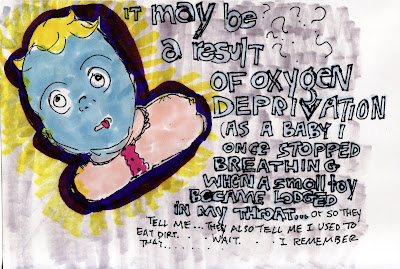 IT MAY BE ? ? ? ?
A RESULT
OF OXYGEN
DEPRIVATION
(AS A BABY I
ONCE STOPPED
BREATHING
WHEN A SMALL TOY
BECAME LODGED
IN MY THROAT... OR SO THEY
TELL ME... THEY ALSO TELL ME I USED TO
EAT DIRT. . . . . . . . . . .
THAT. . . . . WAIT. . . . I REMEMBER